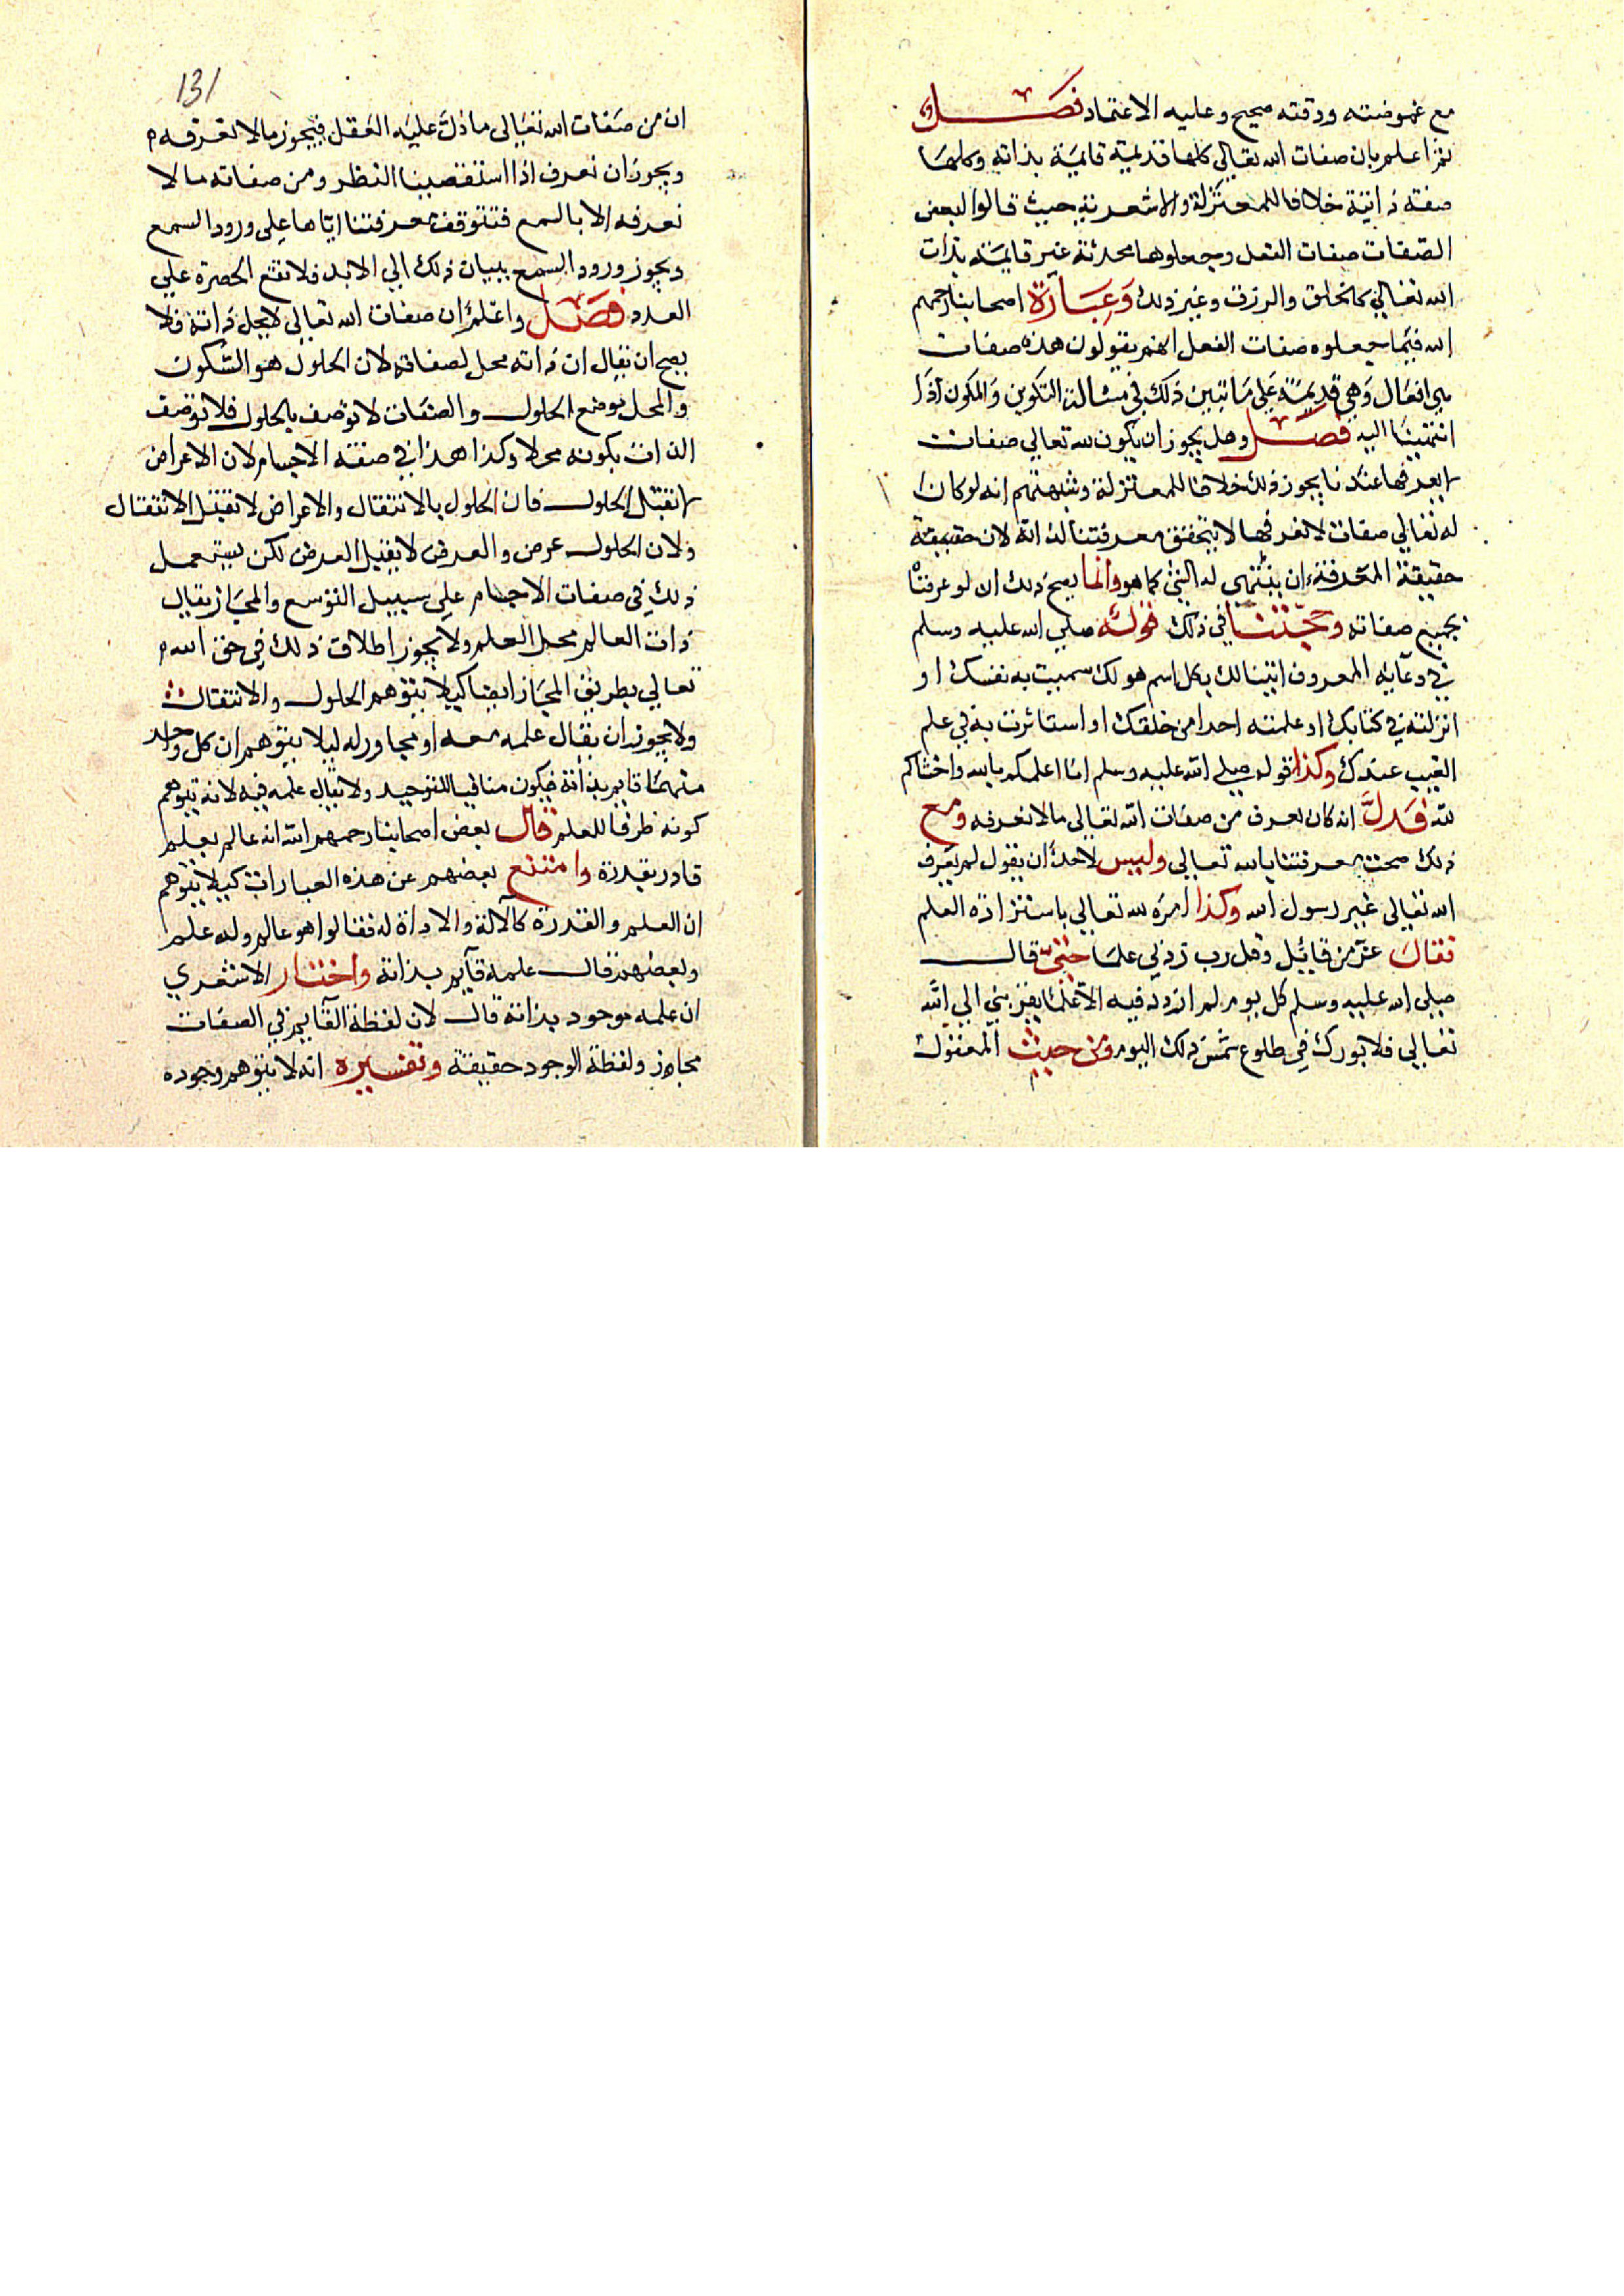 مع غموضته ودقته صحيح وعليه الاعتماد فصل
ثم اعلم بان صفات الله تعالى كلها قديمة قايمة بذاته وكلها
صفة ذاتية خلافا للمعتزلة والاشعرية حيث قالوا لبعض
الصفات صفات الفعل وجعلوها محدثة غير قايمة بذات
الله تعالي كالخلق والرزق وغير ذلك وعبارة اصحابنا رحمهم
الله فيما جعلوه صفات الفعل انهم يقولون هذه صفات
هي افعال وهي قديمة على ما تبين ذلك في مسالة التكوين والمكون اذا
انتهينا اليه فصل وهل يجوز ان يكون لله تعالي صفات
لا يعرفها عندنا يجوز ذلك خلافا للمعتزلة وشبهتهم انه لو كان
له تعالي صفات لا نعرفها لا يتحقق معرفتنا لذاته لان حقيقة
حقيقة المعرفة ان ينتهي له الشي كما هو وانما يصح ذلك ان لو عرفناه
بجميع صفاته وحجتنا في ذلك قوله صلي الله عليه وسلم
في دعايه المعروف اسالك بكل اسم هو لك سميت به نفسك او
انزلته في كتابك او علمته احدا من خلقك او استاثرت به في علم
الغيب عندك وكذا قوله صلي الله عليه وسلم انا اعلمكم بالله واخشاكم
لله فدل انه كان يعرف من صفات الله تعالى ما لا نعرفه ومع
ذلك صحت معرفتنا بالله تعالى وليس لاحد ان يقول لم يعرف
الله تعالى غير رسول الله وكذا امره لله تعالي باستزادة العلم
فقال عز من قايل وقل رب زدني علما حتى قال
صلي الله عليه وسلم كل يوم لم ازدد فيه الا علما يقربني الي الله
تعالي فلا بورك في طلوع شمس ذلك اليوم ومن حيث المعقول
131
ان من صفات الله تعالى ما دل عليه العقل فيجوز ما لا نعرفه
ويجوز ان نعرف اذا استقصينا النظر ومن صفاته ما لا
نعرفه الا بالسمع فتتوقف معرفتنا اياها علي ورود السمع
ويجوز ورود السمع ببيان ذلك الي الابد فلا تقع الحصرة علي
العدد فصل واعلم ان صفات الله تعالي لا يحل ذاته فلا
يصح ان يقال ان ذاته محل لصفاته لان الحلول هو السكون
والمحل موضع الحلول والصفات لا توصف بالحلول فلا توصف
الذات بكونه محلا وكذا هذا في صفة الاجسام لان الاعراض
لا تقبل الحلول فان الحلول بالانتقال والاعراض لا تقبل الانتقال
ولان الحلول عرض والعرض لا يقبل العرض لكن يستعمل
ذلك في صفات الاجسام علي سبيل التوسع والمجاز يقال
ذات العالم محل العلم ولا يجوز اطلاق ذلك في حق الله
تعالي بطريق المجاز ايضا كيلا يتوهم الحلول والانتقال
ولا يجوز ان يقال علمه معه او مجاور له ليلا يتوهم ان كل واحد
منهما قايم بذاته فيكون منافيا للتوحيد ولا يقال علمه فيه لانه يتوهم
كونه ظرفا للعلم قال بعض اصحابنا رحمهم الله انه عالم بعلم
قادر بقدرة وامتنع بعضهم عن هذه العبارات كيلا يتوهم
ان العلم والقدرة كالآلة والاداة له فقالوا هو عالم وله علم
وبعضهم قال علمه قايم بذاته واختار الاشعري
ان علمه موجود بذاته قال لان لفظة القايم في الصفات
مجاز ولفظة الوجود حقيقة وتفسيره انه لا يتوهم وجوده